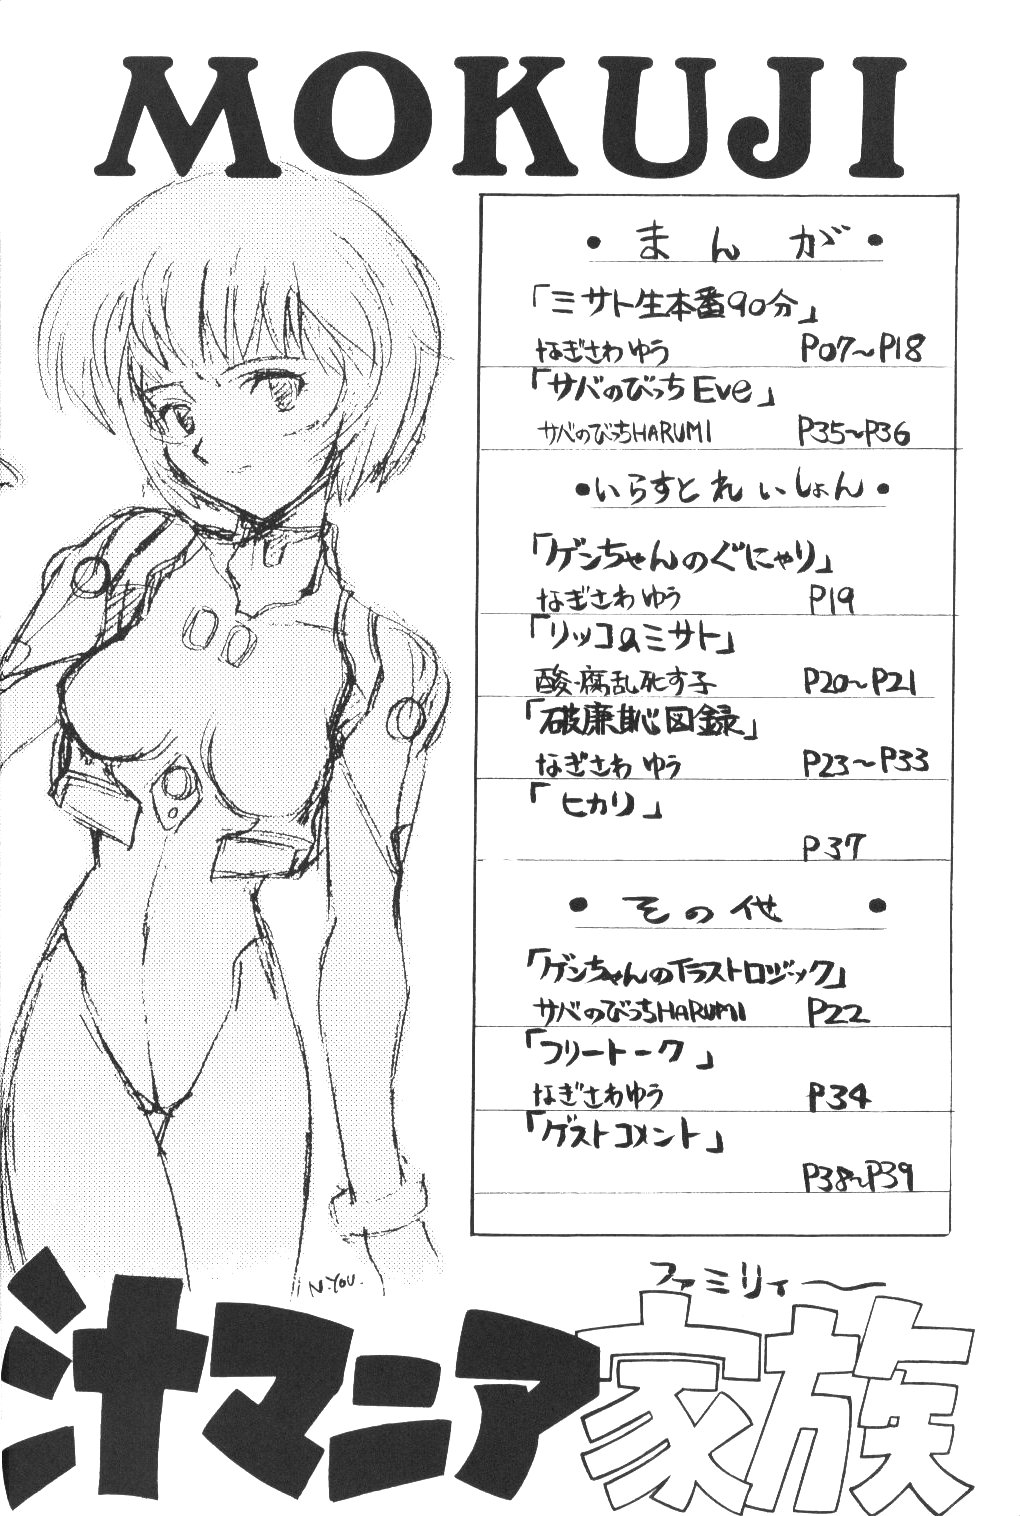 MOKUJI
・まんが・
「ミサト生本番90分」
なぎさわゆう P07〜P18
「サバのびっちEve」
サバのびっちHARUMI P35〜P36
・いらすとれいしょん・
「ゲンちゃんのぐにゃり」
なぎさわゆう P19
「リッコのミサト」
酸・腐乱死す子 P20〜P21
「破廉恥図録」
なぎさわゆう P23〜P33
「ヒカリ」
P37
・その他・
「ゲンちゃんのイラストロジック」
サバのびっちHARUMI P22
「フリートーク」
なぎさわゆう P34
「ゲストコメント」
P38〜P39
N.YOU.
ファミリィー
汁マニア家族